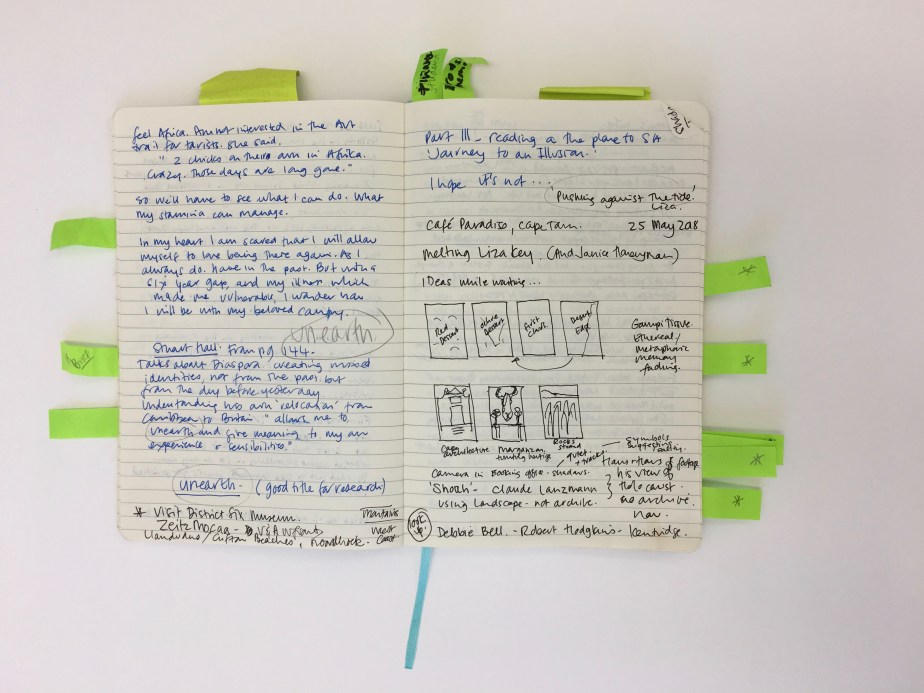 feel Africa. Am not interested in the Art
trail for tourists. She said,
" 2 chicks on their own in Africa.
Crazy. Those days are long gone."
So we'll have to see what I can do. What
my stamina can manage.
In my heart I am scared that I will allow
myself to love being there again. As I
always do. Have in the past. But with a
six year gap, and my illness which
made me vulnerable, I wonder how
I will be with my beloved country.
unearth
Stuart Hall. From pg 144.
Talks about Diaspora. creating
identities, not from the past but
from the day before yesterday
Understanding his own 'relocation' from
Caribbean to Britain. " allows me to
unearth and give meaning to my own
experience + sensibilities."
unearth. (good title for research)
* Visit District Six Museum.
Zeitz Mocaa - V&A
Llandudno / Clifton Beaches,
West
Coast
Part III - reading on the plane to SA
'Journey to an Illusion.'
I hope it's not ...
'Pushing against the tide'
Liza.
Café Paradiso, Cape Town. 25 May 2018
Meeting Liza Key. (And Janice Honeyman)
Ideas while waiting ...
Red
Desert
Desert
First
Desert
Edge
Gampi Tissue.
Ethereal/
metaphoric
memory
fading.
Cape
architecture
Rocks
strand
symbols
suggesting
Camera in Booking office - shadows.
quiet
+ tracks
of footage
'Shoah' - Claude Lanzmann
his view of
Holocaust.
using landscape - not archive.
no archive.
now.
look
up
Debbie Bell. - Robert Hodgkins - Kentridge.